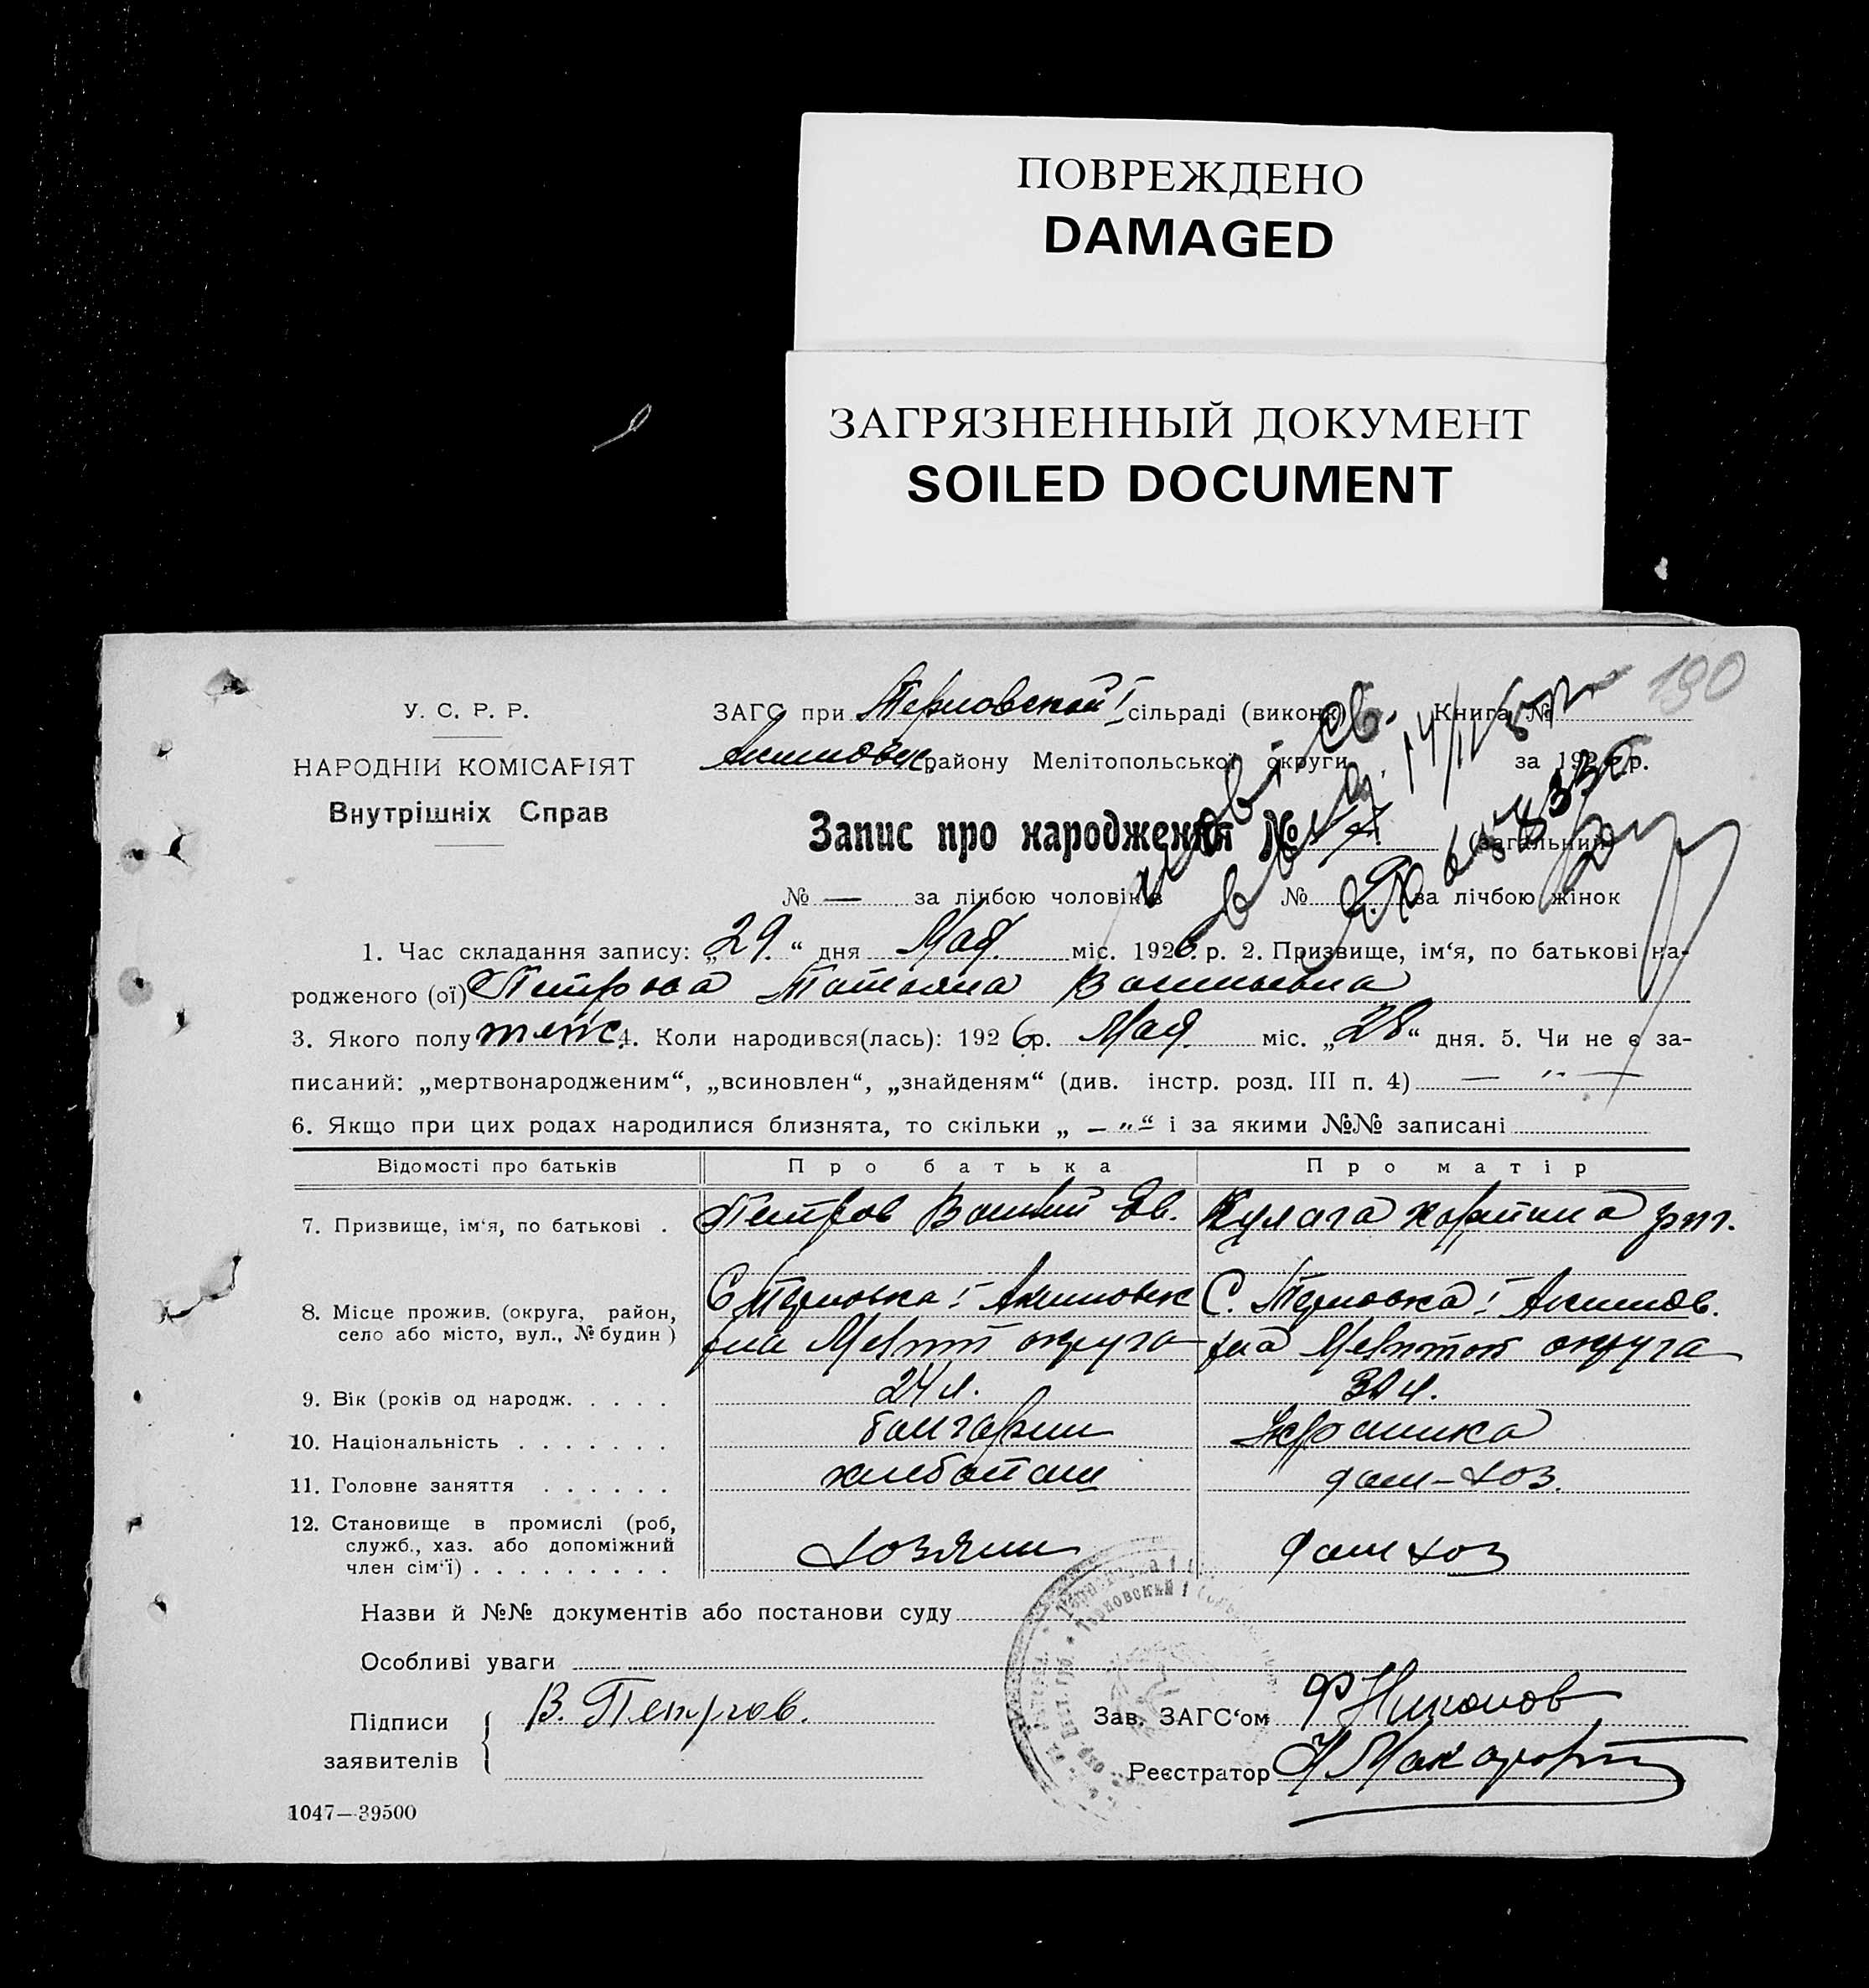 ПОВРЕЖДЕНО
DAMAGED
ЗАГРЯЗНЕННЫЙ ДОКУМЕНТ
SOILED DOCUMENT
190
У. С. Р. Р.
НАРОДНІЙ КОМІСАРІЯТ
Внутрішніх Справ
ЗАГС при Терновской I сільраді (виконк) Книга №
Акимовск району Мелітопольської округи за 1926 р.
Запис про народження № (загальний)
№ — за лічбою чоловіків № 9 за лічбою жінок
1. Час складання запису: „29“ дня Мая міс. 1926 р. 2. Призвище, ім‘я, по батькові на-
родженого (ої) Петрова Татьяна Васильевна
3. Якого полу женс. 4. Коли народився(лась): 1926 р. Мая міс. „28“ дня. 5. Чи не є за-
писаний: „мертвонародженим“, „всиновлен“, „знайденям“ (див. інстр. розд. III п. 4) — „ —
6. Якщо при цих родах народилися близнята, то скільки „ — „ “ і за якими №№ записані
Відомості про батьків Про батька Про матір
7. Призвище, ім‘я, по батькові . Петров Василий Ив. Кулага
8. Місце прожив. (округа, район, село або місто, вул., № будин) С Терновка I Акимовск С. Терновка I Акимов.
р-на Мелит округа р-на Мелитоп округа
9. Вік (років од народж. . . . . 24 л.
10. Національність . . . . . . . болгарин Украинка
11. Головне заняття . . . . . . хлебопаш дом-хоз.
12. Становище в промислі (роб,
служб., хаз. або допоміжний
член сім‘ї) . . . . . . . . . Хозяин дом хоз
Назви й №№ документів або постанови суду
Особливі уваги
Підписи заявителів В. Петров.
Зав. ЗАГС‘ом Ф Никонов
Реєстратор
1047—39500